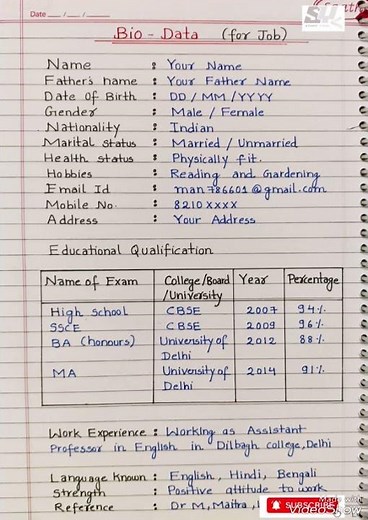 Date __/__/__
Bio - Data (for Job)
Name : Your Name
Father's name : Your Father Name
Date Of Birth : DD / MM / YYYY
Gender : Male / Female
Nationality : Indian
Marital Status : Married / Unmarried
Health status : Physically fit.
Hobbies : Reading and Gardening
Email Id : man786601@gmail.com
Mobile No. : 8210xxxx
Address : Your Address
Educational Qualification
Name of Exam College/Board/University Year Percentage
High School CBSE 2007 94%
SSCE CBSE 2009 96%
BA (honours) University of Delhi 2012 88%
MA University of Delhi 2014 91%
Work Experience : Working as Assistant
Professor in English in Dilbagh college, Delhi
Language Known : English, Hindi, Bengali
Strength : Positive attitude to work
Reference : Dr M, Maitra,
SUBSCRIBE
Made with
VideoShow